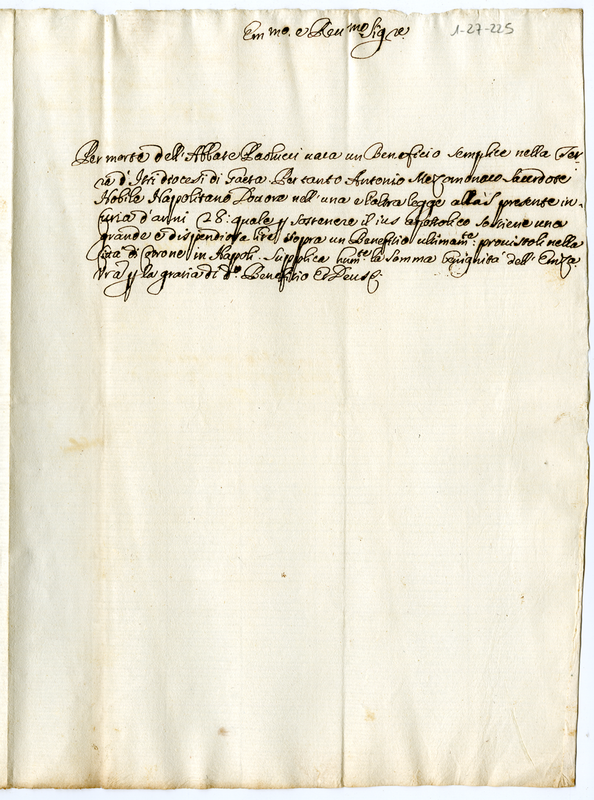 Em.mo e Reu.mo Sig.re
1-27-225
Per morte dell'Abbate Paolucci uaca un Beneficio semplice nella Ter
ra d'Itri diocesi di Gaeta. Per tanto Antonio Mezomonaco Sacerdote
Nobile Napolitano Dottore nell'una e l'altra legge al presente in
curia d'anni 28: quale p sostenere il ius apostolico sostiene una
grande e dispendiosa lite sopra un Beneficio ultimam.te prouistoli nella
Città di Cotrone in Napoli. Supplica hum.te la somma benignità dell'Em.za
V.ra p la gratia di d.o Beneficio Et Deus &